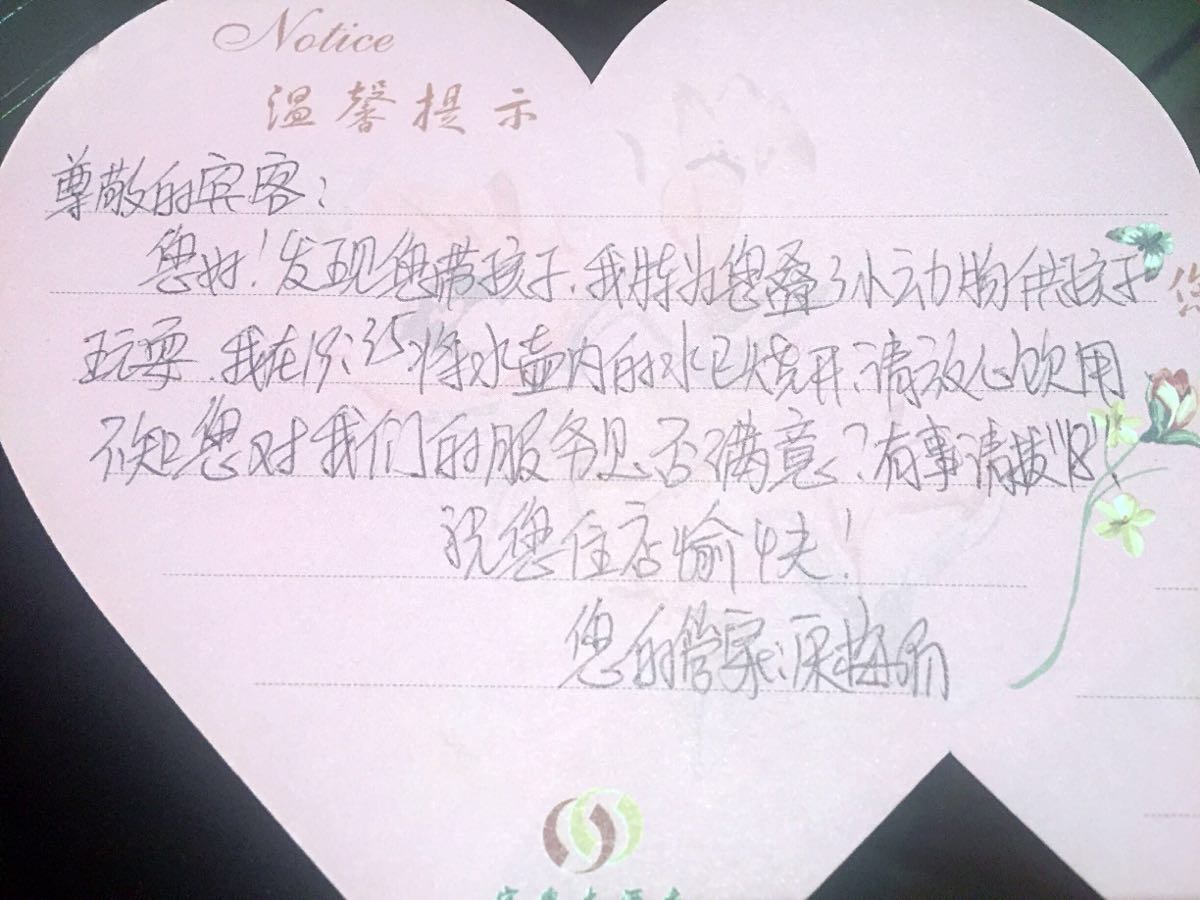 Notice
温馨提示
尊敬的宾客：
您好！发现您带孩子，我特为您叠了小动物供孩子
玩耍，我在18:35将水壶内的水已烧开，请放心饮用
不知您对我们的服务是否满意？有事请拨"18"！
祝您住店愉快！
您的管家：
您